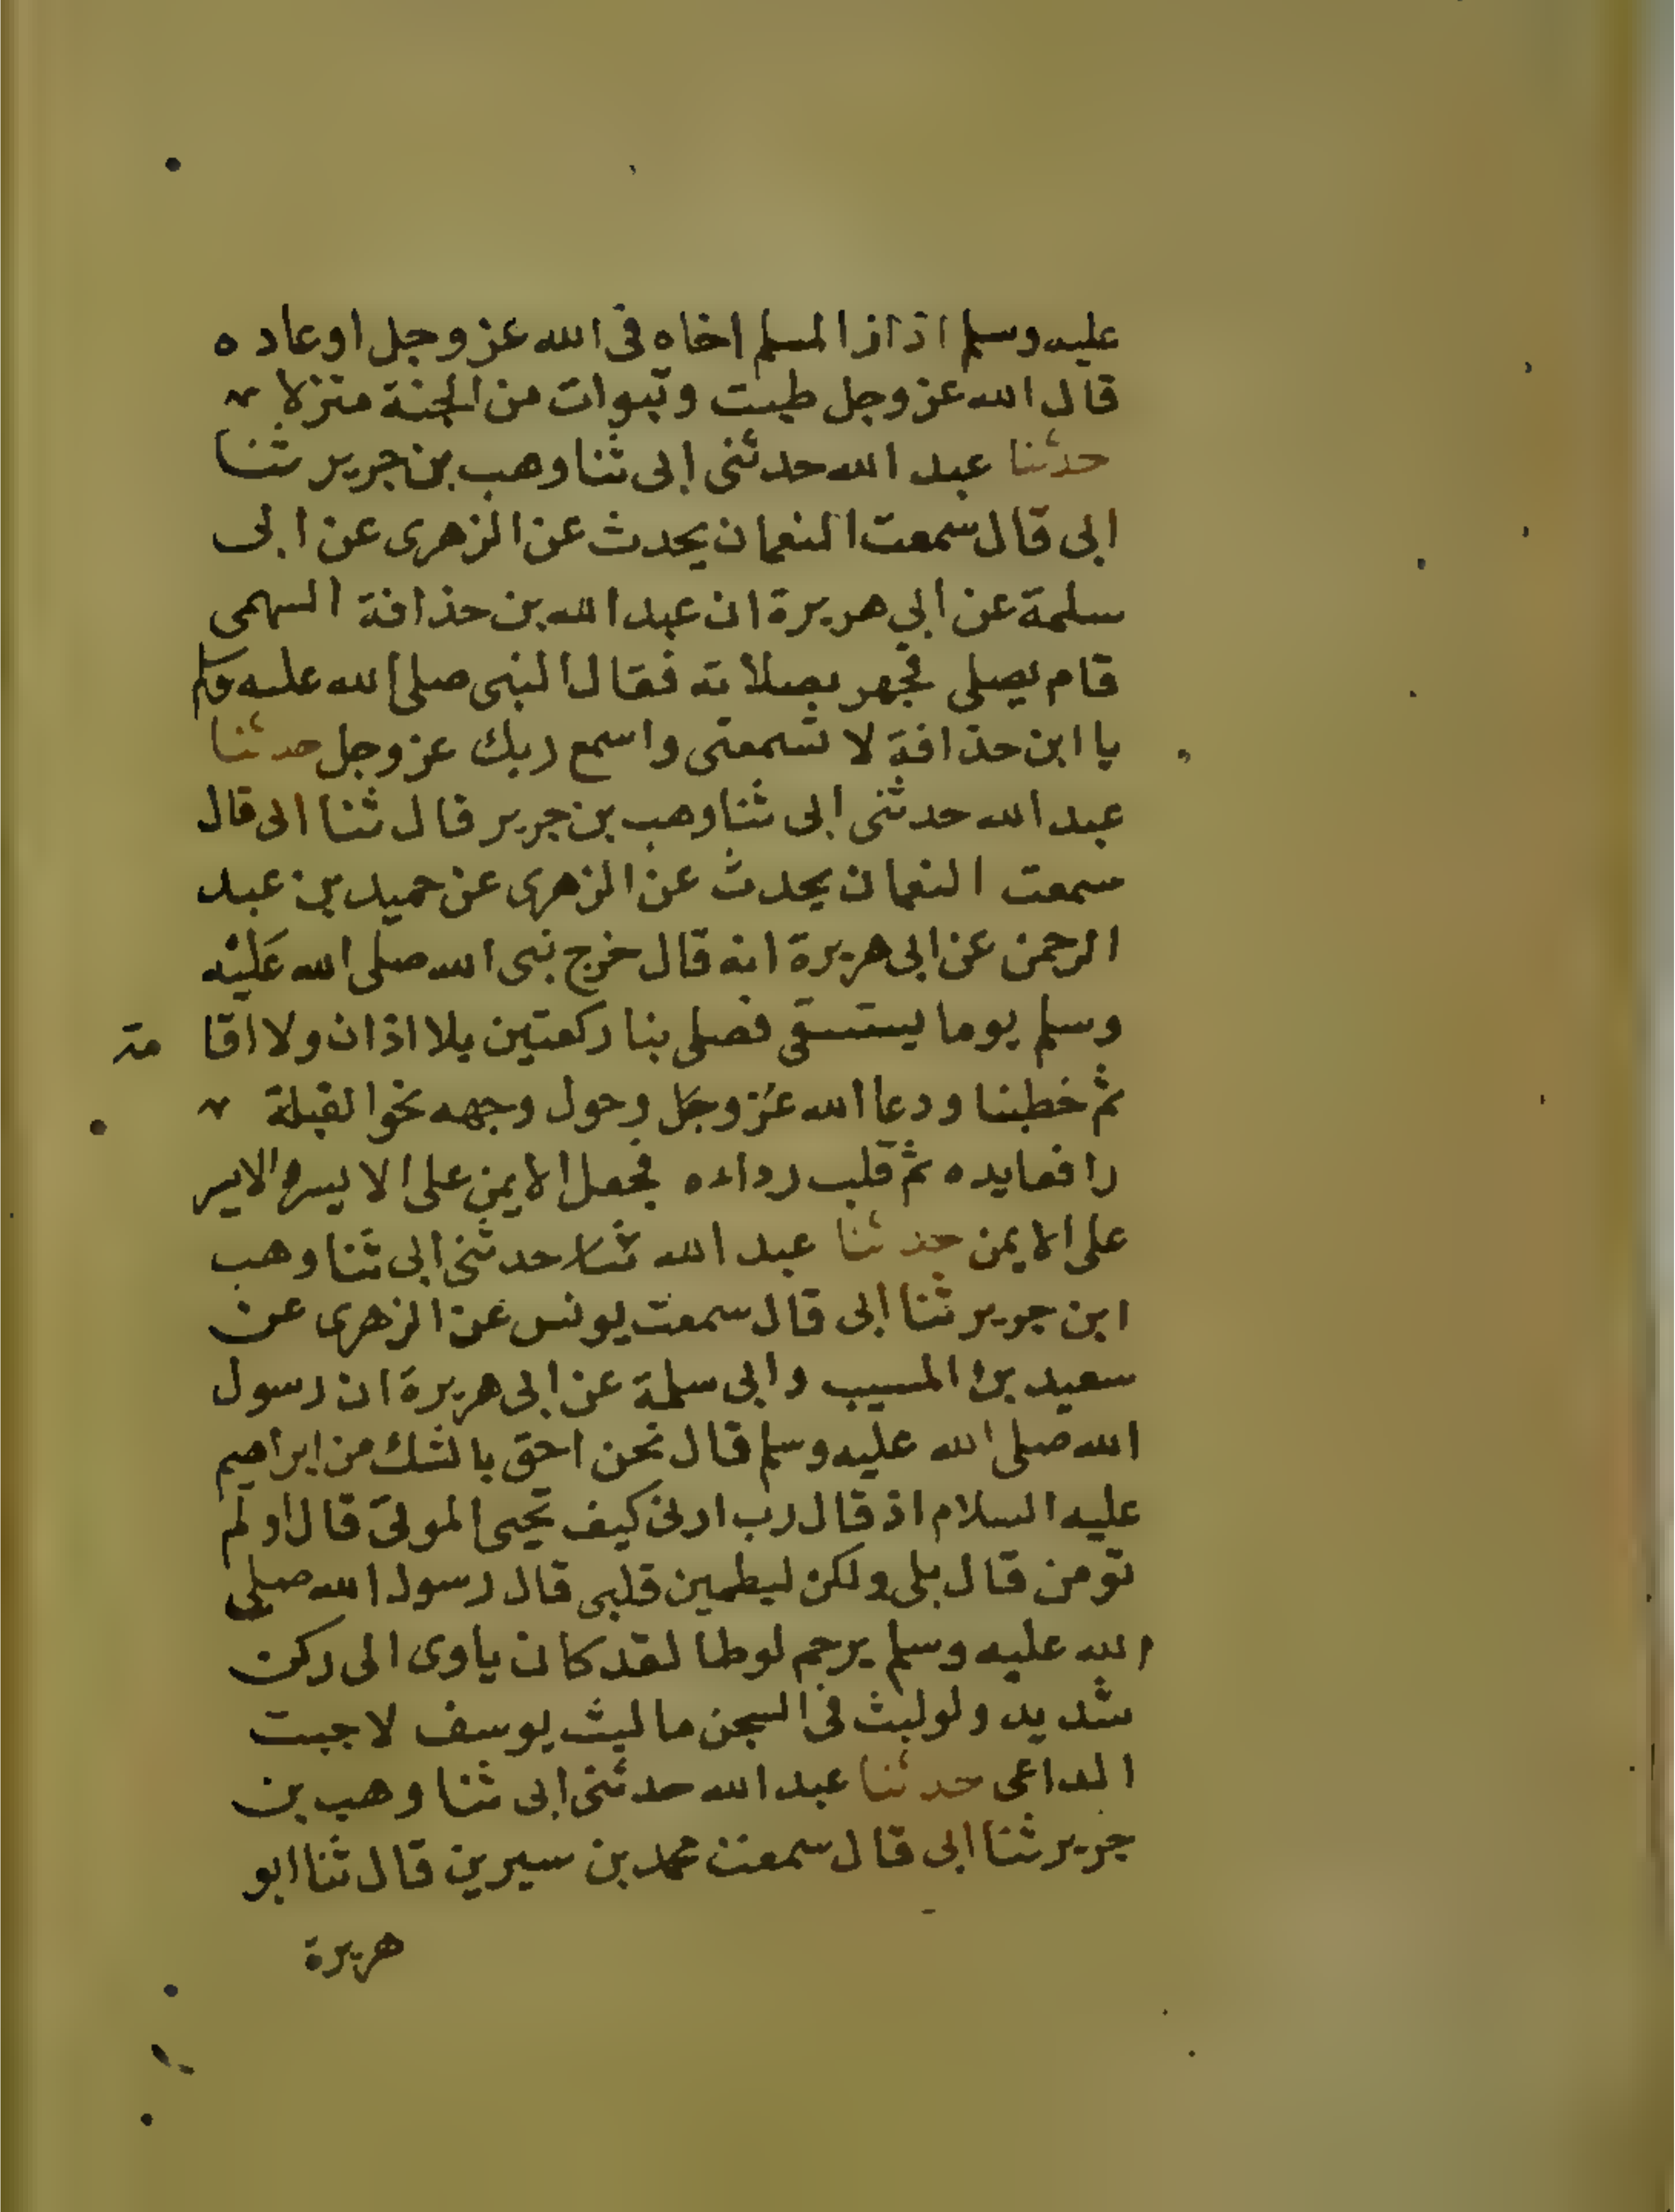 عليه وسلم اذا زار المسلم اخاه في الله عز وجل او عاده
قال الله عز وجل طبت وتبوات من الجنة منزلا
حدثنا عبد الله حدثنى ابى ثنا وهب بن جرير ثنا
ابى قال سمعت النعمان يحدث عن الزهرى عن ابى
سلمة عن ابي هريرة ان عبد الله بن حذافة السهمى
قام يصلى فجهر بصلاته فقال النبى صلى الله عليه وسلم
يا ابن حذافة لا تسمعنى واسمع ربك عز وجل حدثنا
عبد الله حدثنى ابى ثنا وهب بن جرير قال ثنا ابى قال
سمعت النعمان يحدث عن الزهرى عن حميد بن عبد
الرحمن عن ابى هريرة انه قال خرج نبى الله صلى الله عليه
وسلم يوما يستسقى فصلى بنا ركعتين بلا اذان ولا اقامة
ثم خطبنا ودعا الله عز وجل وحول وجهه نحو القبلة
رافعا يده ثم قلب رداءه فجعل الايمن على الايسر والايسر
على الايمن حدثنا عبد الله ثنا حدثنى ابى ثنا وهب
ابن جرير ثنا ابى قال سمعت يونس عن الزهرى عن
سعيد بن المسيب وابى سلمة عن ابى هريرة ان رسول
الله صلى الله عليه وسلم قال نحن احق بالشك من ابراهيم
عليه السلام اذ قال رب ارنى كيف تحيى الموتى قال اولم
تومن قال بلى ولكن ليطمين قلبى قال رسول الله صلى
الله عليه وسلم يرحم لوطا لقد كان ياوى الى ركن
شديد ولو لبث في السجن ما لبث يوسف لاجبت
الداعى حدثنا عبد الله حدثنى ابى ثنا وهب بن
جرير ثنا ابى قال سمعت محمد بن سيرين قال ثنا ابو
هريرة